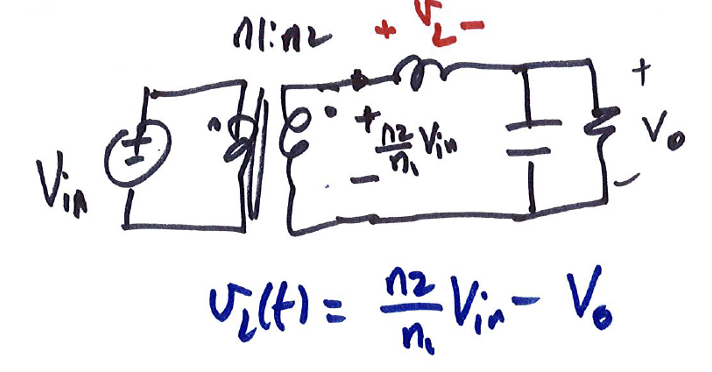 n1:n2
+ v_L −
+
Vin
+ n2/n1 Vin −
Vo
−
v_L(t) = n2/n1 Vin − Vo